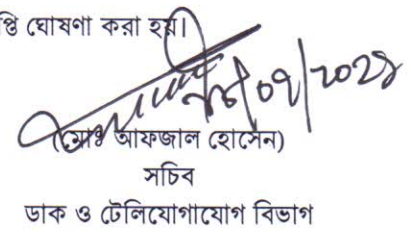 প্তি ঘোষণা করা হয়।
/০৭/২০২১
(মোঃ আফজাল হোসেন)
সচিব
ডাক ও টেলিযোগাযোগ বিভাগ